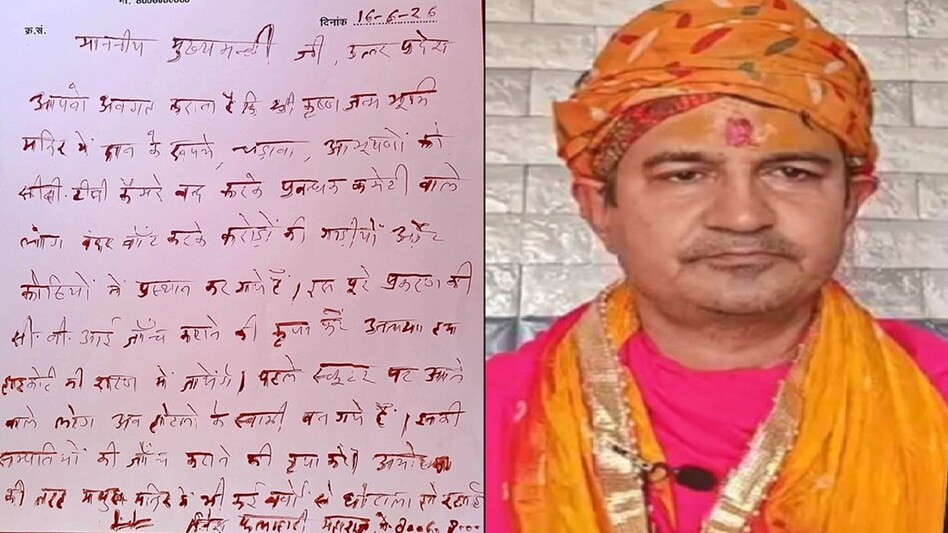 मो. 8006000000
क्र.सं. दिनांक 16-6-26
माननीय मुख्यमन्त्री जी, उत्तर प्रदेश
आपको अवगत कराना है कि श्री कृष्ण जन्म भूमि
मन्दिर में दान के रूपये, चढ़ावा, आभूषणों को
सीसी. टीवी कैमरे बन्द करके प्रबन्धक कमेटी वाले
लोग बंदर बाँट करके करोड़ों की गाड़ीयों और
कोठियों में प्रस्थान कर गये हैं। इस पूरे प्रकरण की
सी. बी. आई जाँच कराने की कृपा करें अन्यथा हम
हाईकोर्ट की शरण में जायेंगे। पहले स्कूटर पर आने
वाले लोग अब होटलों के स्वामी बन गये हैं। इनकी
सम्पत्तियों की जाँच कराने की कृपा करें। अयोध्या
की तरह मथुरा मन्दिर में भी कई वर्षों से घोटाला हो रहा है
दिनेश फलाहारी महाराज